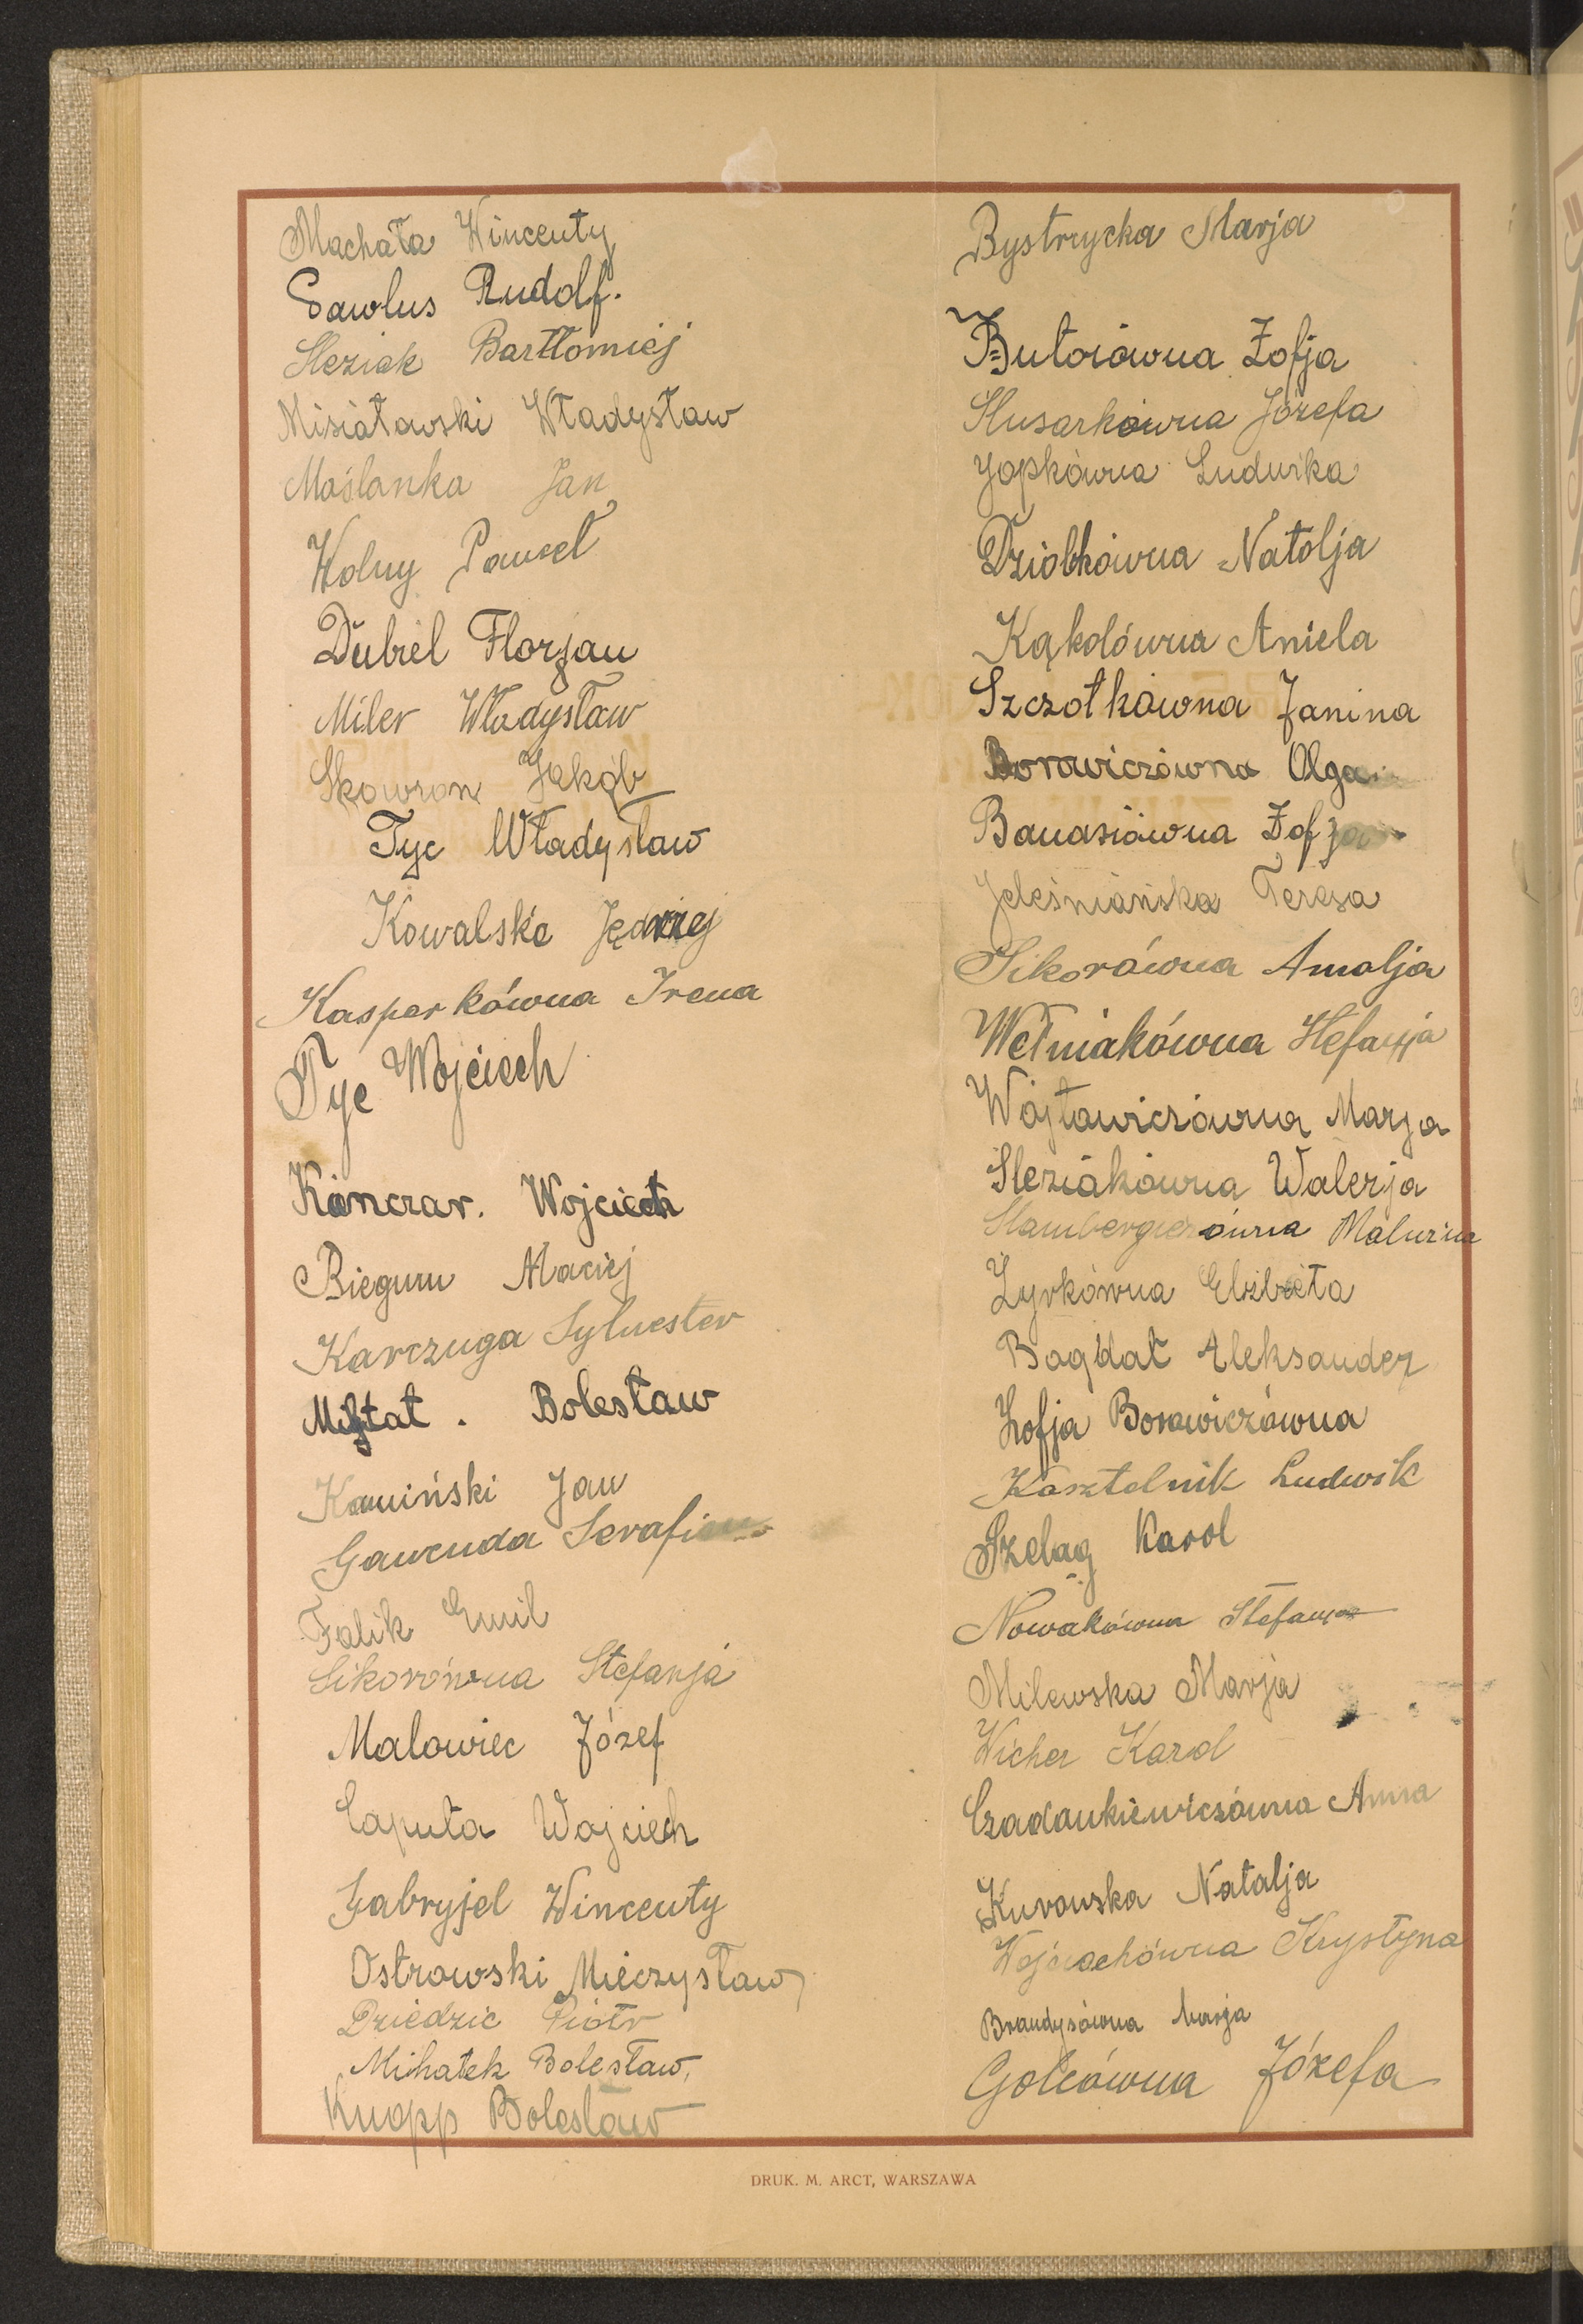 Machała Wincenty
Pawlus Rudolf.
Sleziak Bartłomiej
Misiałowski Władysław
Maślanka Jan
Wolny Paweł
Dubiel Florjan
Miler Władysław
Skowron Jakób
Tyc Władysław
Kowalski Jędrzej
Kasperkówna Irena
Tyc Wojciech
Kónczar. Wojciech
Biegun Maciej
Karczuga Sylwester
Bolesław
Kamiński Jan
Gawenda Serafin
Falik Emil
Sikorówna Stefanja
Malowiec Józef
Caputa Wojciech
Gabryjel Wincenty
Ostrowski Mieczysław
Dziedzic Piotr
Michałek Bolesław,
Knopp Bolesław
Bystrzycka Marja
Butorówna Zofja
Slusarkówna Józefa
Jopkówna Ludwika
Dziobkówna Natolja
Kąkolówna Aniela
Szczotkówna Janina
Borowiczówna Olga
Banasiówna Zofja
Jeleśniańska Teresa
Sikorówna Amalja
Wełniakówna Stefanja
Wojtowiczówna Marja
Sleziakówna Walerja
Stambergierówna Malwina
Żyrkówna Elżbieta
Bogdał Aleksander
Zofja Borowiczówna
Kasztelnik Ludwik
Szeląg Karol
Nowakówna Stefanja
Milewska Marja
Wicher Karol
Czadankiewiczówna Anna
Kurowska Natalja
Wojciechówna Krystyna
Brandysówna Marja
Golcówna Józefa
DRUK. M. ARCT, WARSZAWA